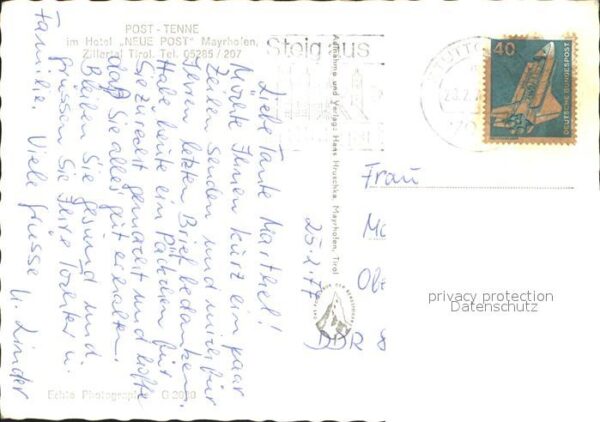 POST - TENNE
im Hotel „NEUE POST" Mayrhofen,
Zillertal Tirol. Tel. 05285 / 207
Steig aus
Aufnahme und Verlag: Hans Hruschka, Mayrhofen, Tirol
40
DEUTSCHE BUNDESPOST
25.2.77
Liebe Tante Marthel!
Möchte Ihnen kurz ein paar
Zeilen senden und mich für
Ihren letzten Brief bedanken.
Habe heute ein Päckchen für
Sie zurecht gemacht und hoffe
daß Sie alles gut erhalten.
Bleiben Sie gesund und
grüssen Sie Ihre Tochter u.
Familie. Viele Grüsse
Frau
DDR 8
privacy protection
Datenschutz
Echte Photographie